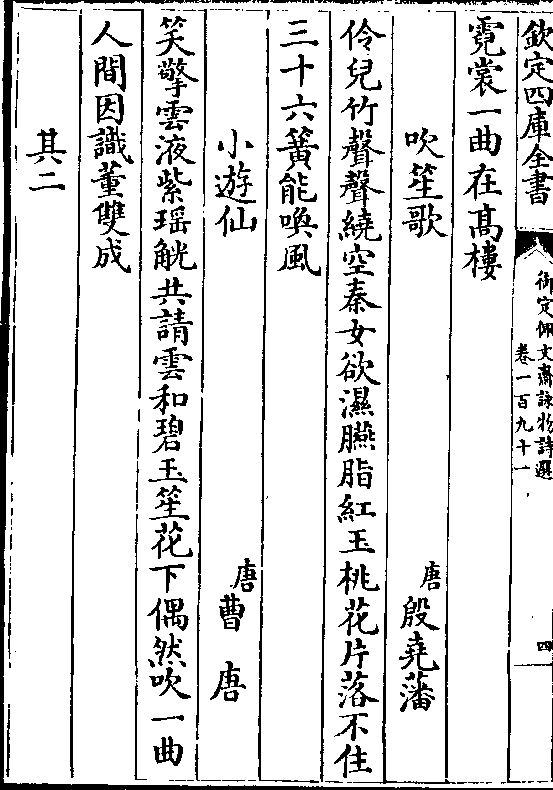 欽定四庫全書
御定佩文齋詠物詩選
卷一百九十一
四
霓裳一曲在髙樓
吹笙歌
唐
殷堯藩
伶兒竹聲聲繞空秦女欲濕臙脂紅玉桃花片落不住
三十六簧能喚風
小遊仙
唐
曹唐
笑擎雲液紫瑶觥共請雲和碧玉笙花下偶然吹一曲
人間因識董雙成
其二